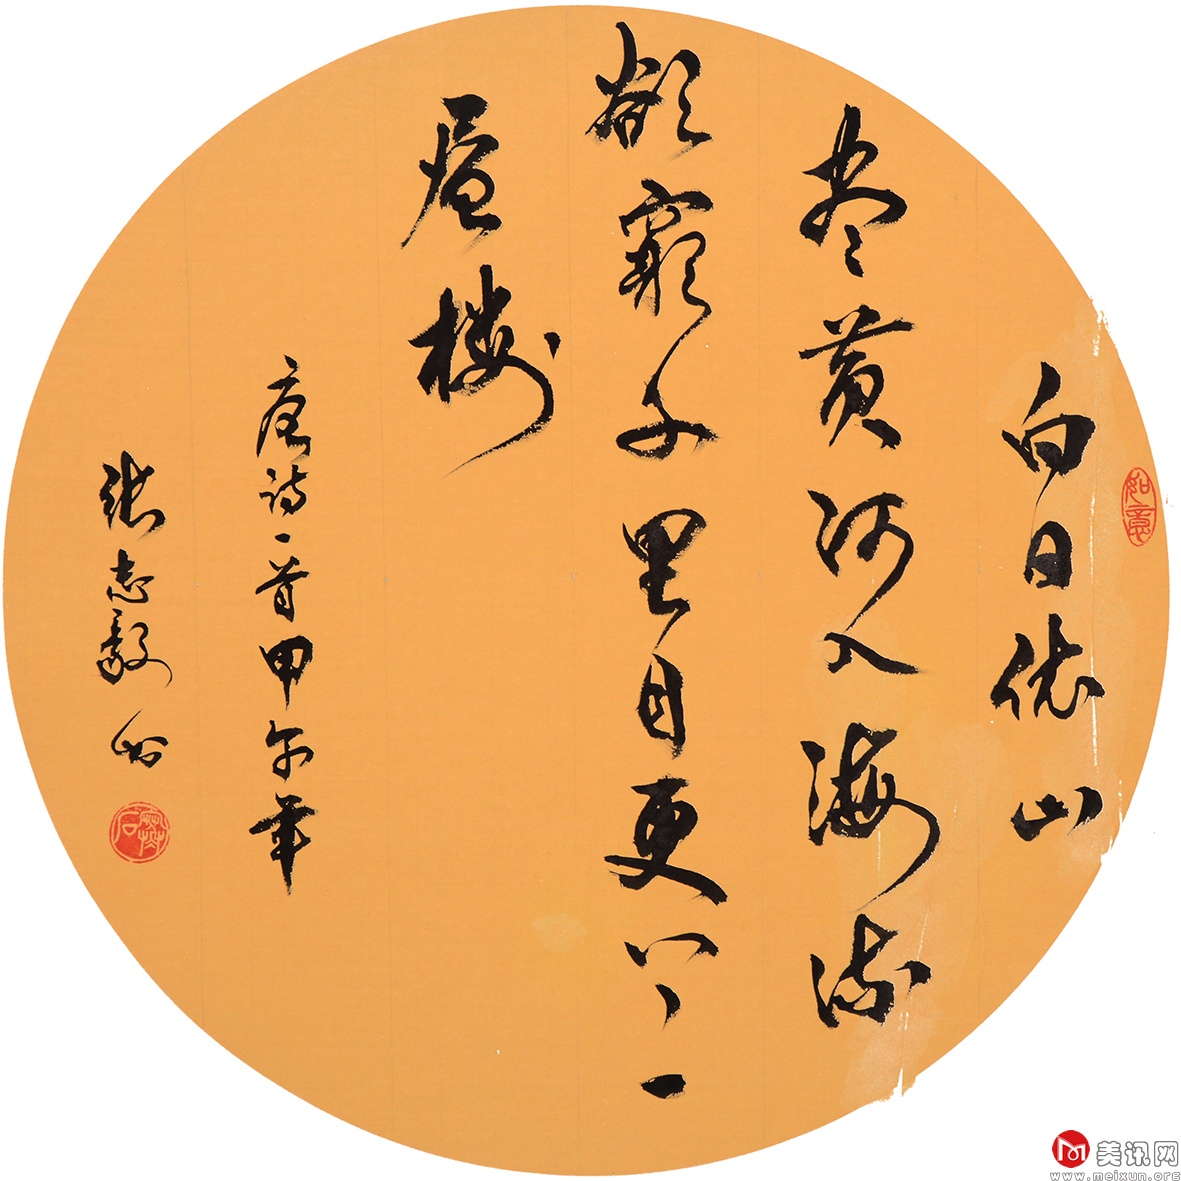 白日依山
尽黄河入海流
欲窮千里目更上一
層楼
唐诗一首甲午年
张志毅书
如意
美讯网
www.meixun.org